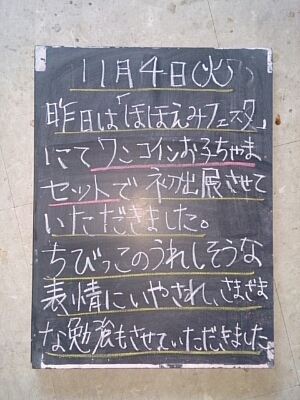 11月4日(火)
昨日は「ほほえみフェスタ」
にてワンコインお子ちゃま
セットで初出展させて
いただきました。
ちびっこのうれしそうな
表情にいやされ、さまざま
な勉強もさせていただきました